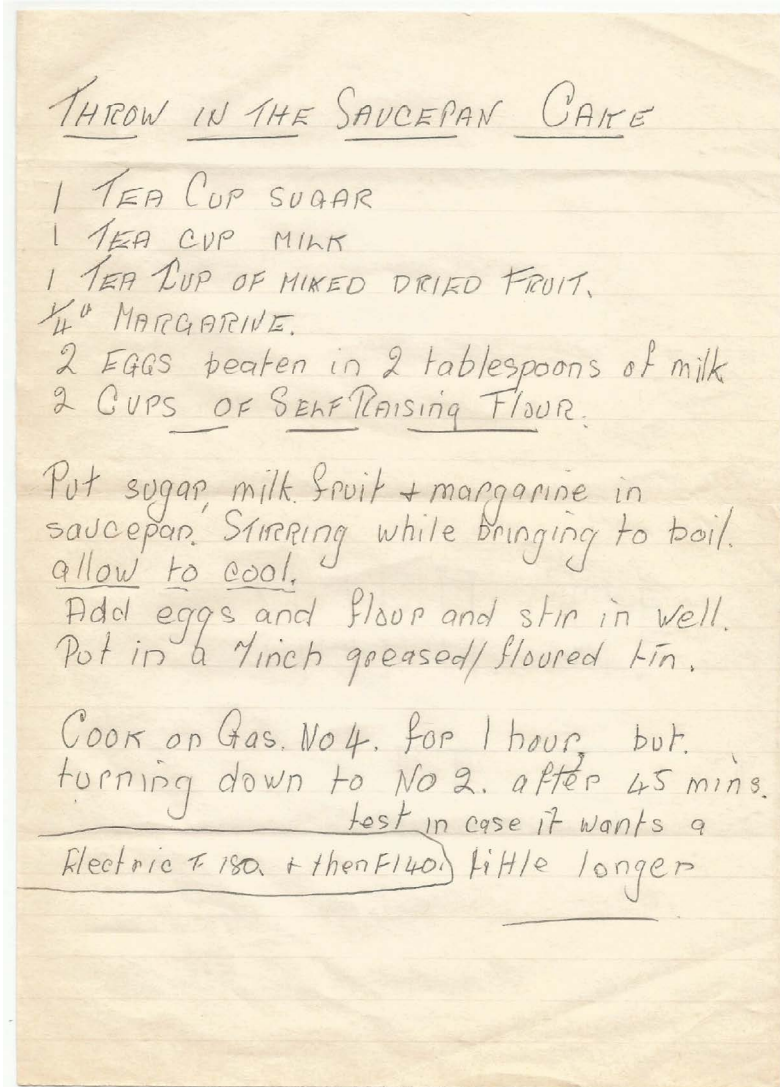 THROW IN THE SAUCEPAN CAKE
1 TEA CUP SUGAR
1 TEA CUP MILK
1 TEA CUP OF MIXED DRIED FRUIT.
1/4" MARGARINE.
2 EGGS beaten in 2 tablespoons of milk
2 CUPS OF SELF RAISING FLOUR.
Put sugar, milk fruit + margarine in
saucepan. STIRRING while bringing to boil.
allow to cool.
Add eggs and flour and stir in well.
Put in a 7inch greased/floured tin.
COOK on Gas. No 4. for 1 hour, but.
turning down to No 2. after 45 mins.
test in case it wants a
Electric 180. + then 140. little longer